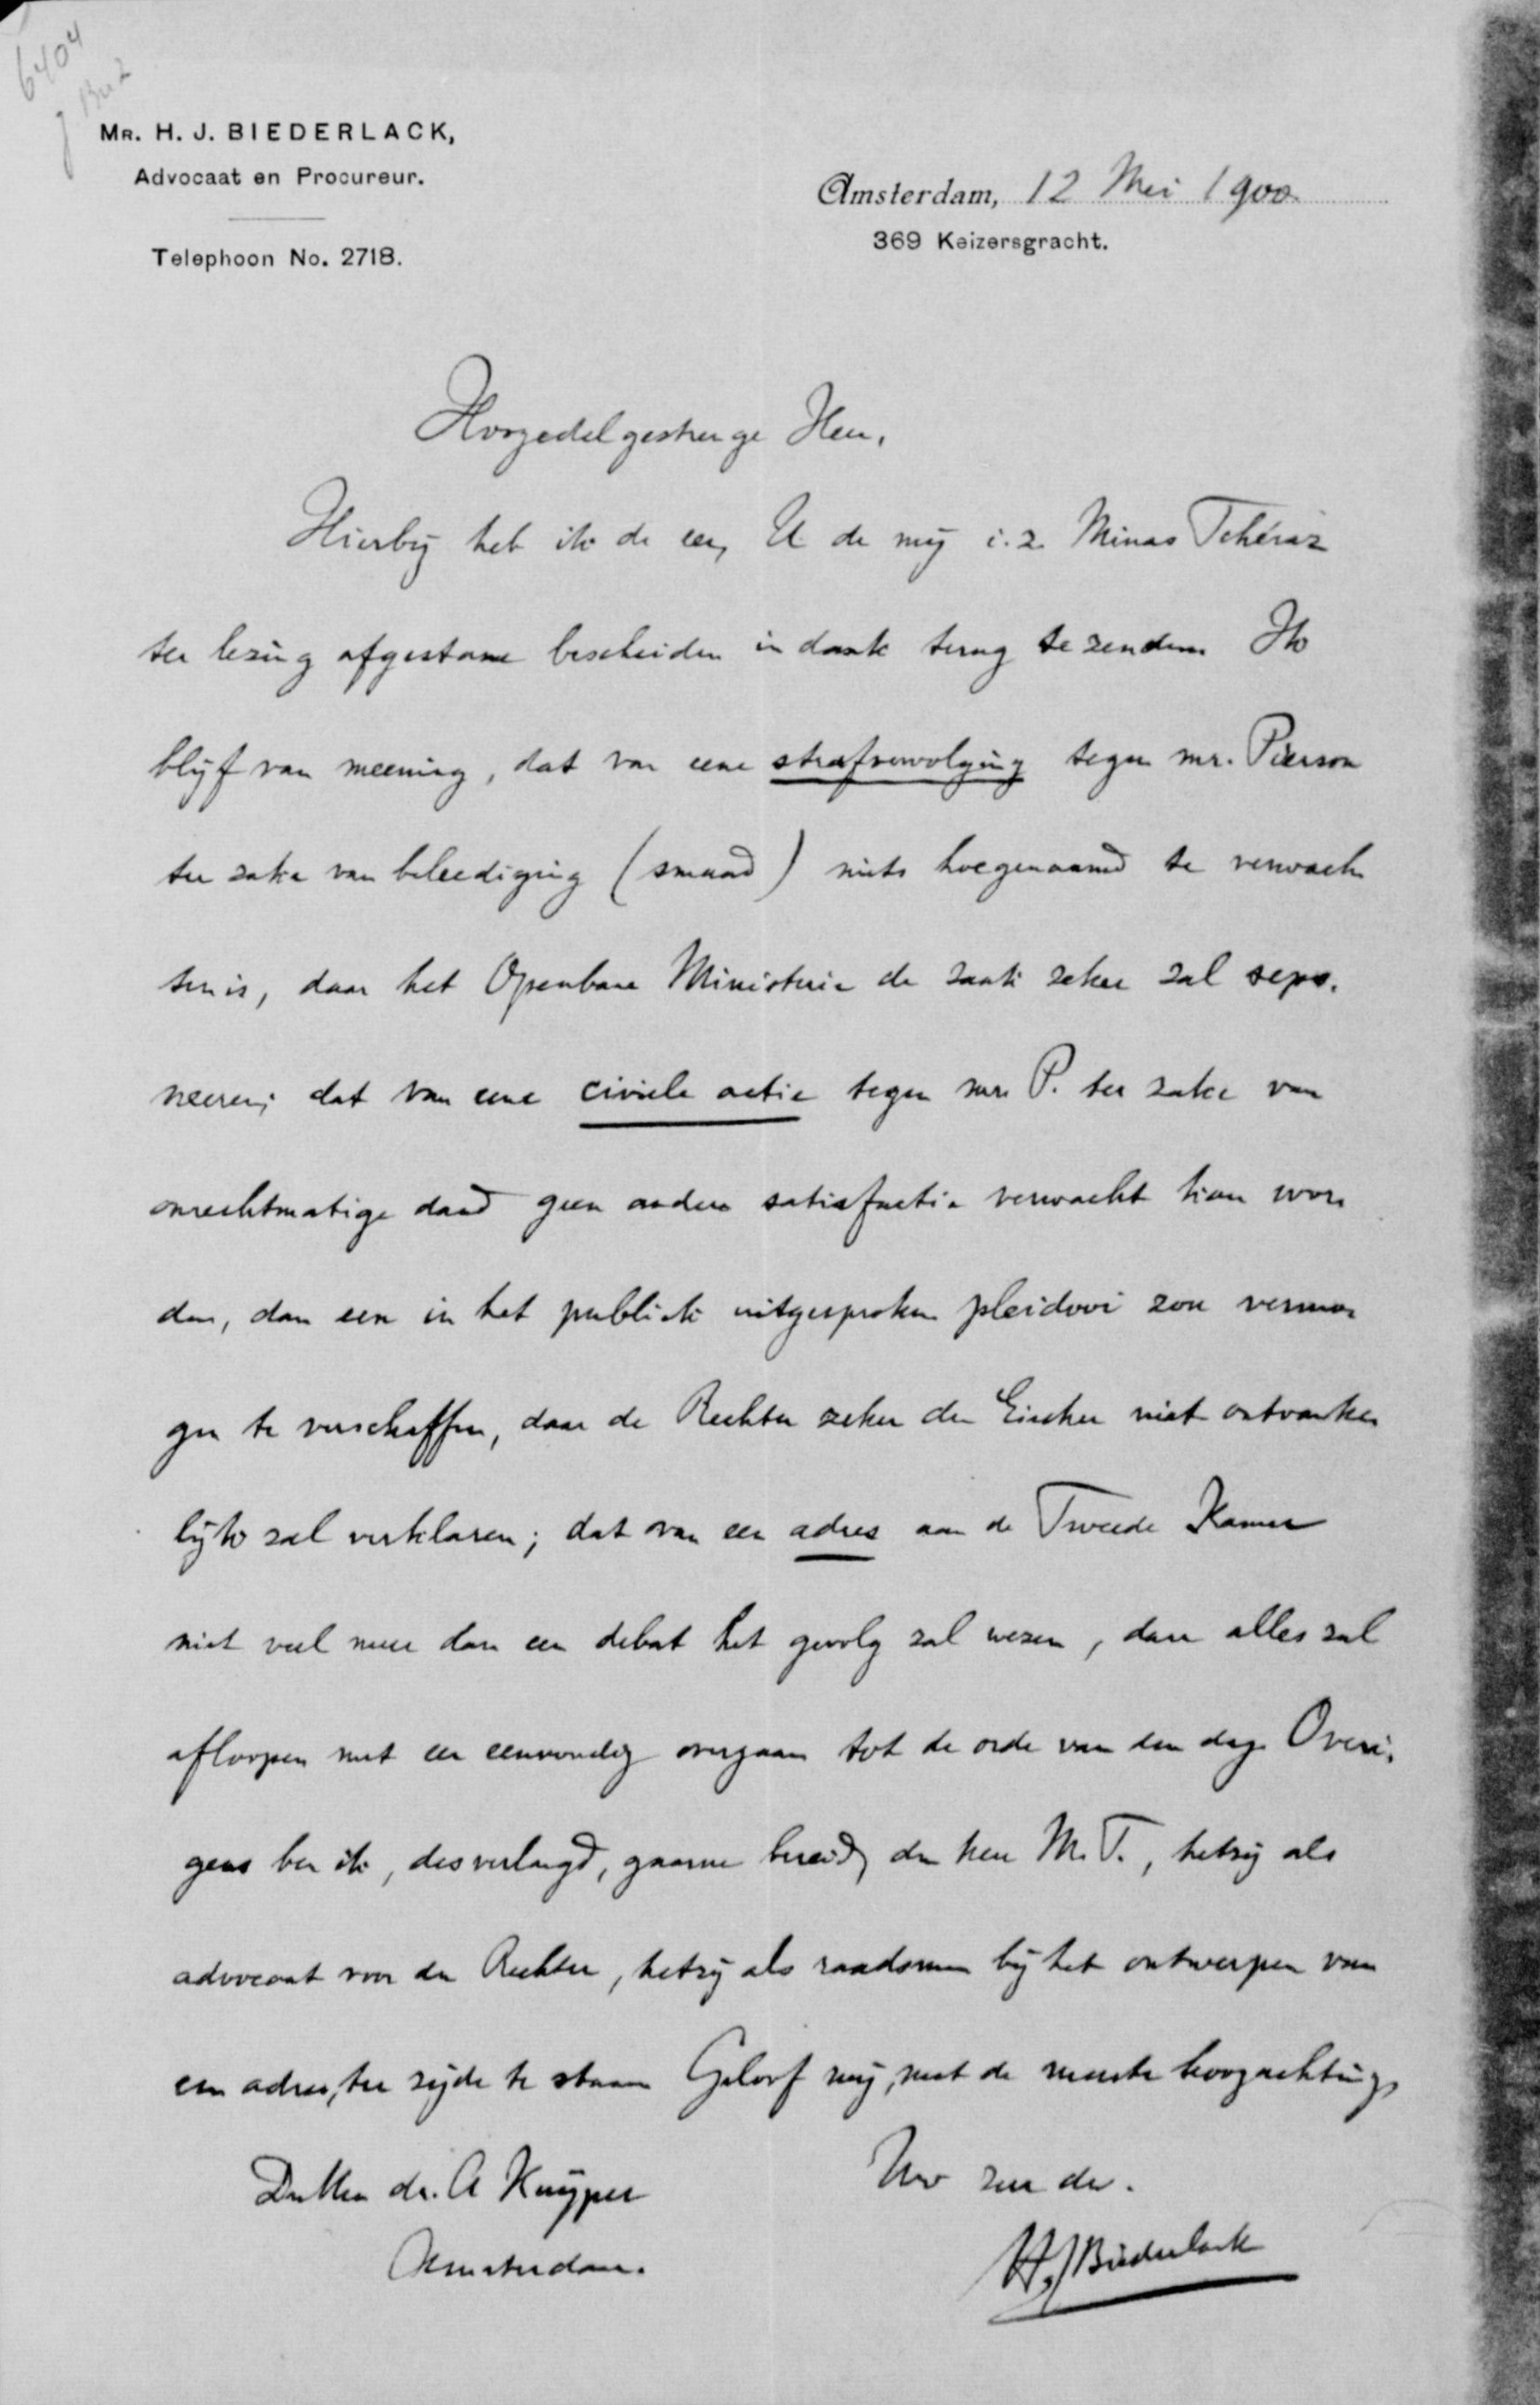 6404
MR. H. J. BIEDERLACK,
Advocaat en Procureur.
Telephoon No. 2718.
Amsterdam, 12 Mei 1900.
369 Keizersgracht.
Hoogedelgestrenge Heer,
Hierbij heb ik de eer, U de mij i.z. Minas Tchéraz
ter lezing afgestane bescheiden in dank terug te zenden. Ik
blijf van meening, dat van eene strafvervolging tegen mr. Pierson
ter zake van beleediging (smaad) niets hoegenaamd te verwach
ten is, daar het Openbare Ministerie de zaak zeker zal sepo-
neeren; dat van eene civiele actie tegen mr. P. ter zake van
onrechtmatige daad geen andere satisfactie verwacht kan wor-
den, dan een in het publiek uitgesproken pleidooi zou vermo-
gen te verschaffen, daar de Rechter zeker den Eischer niet ontvanke-
lijk zal verklaren; dat van een adres aan de Tweede Kamer
niet veel meer dan een debat het gevolg zal wezen, daar alles zal
afloopen met een eenvoudig overgaan tot de orde van den dag. Overi-
gens ben ik, desverlangd, gaarne bereid, den heer M.T., hetzij als
advocaat voor den Rechter, hetzij als raadsman bij het ontwerpen van
een adres, ter zijde te staan. Geloof mij, met de meeste hoogachting,
Uw zeer dw.
Den Heer dr. A Kuyper
Amsterdam.
H.J Biederlack